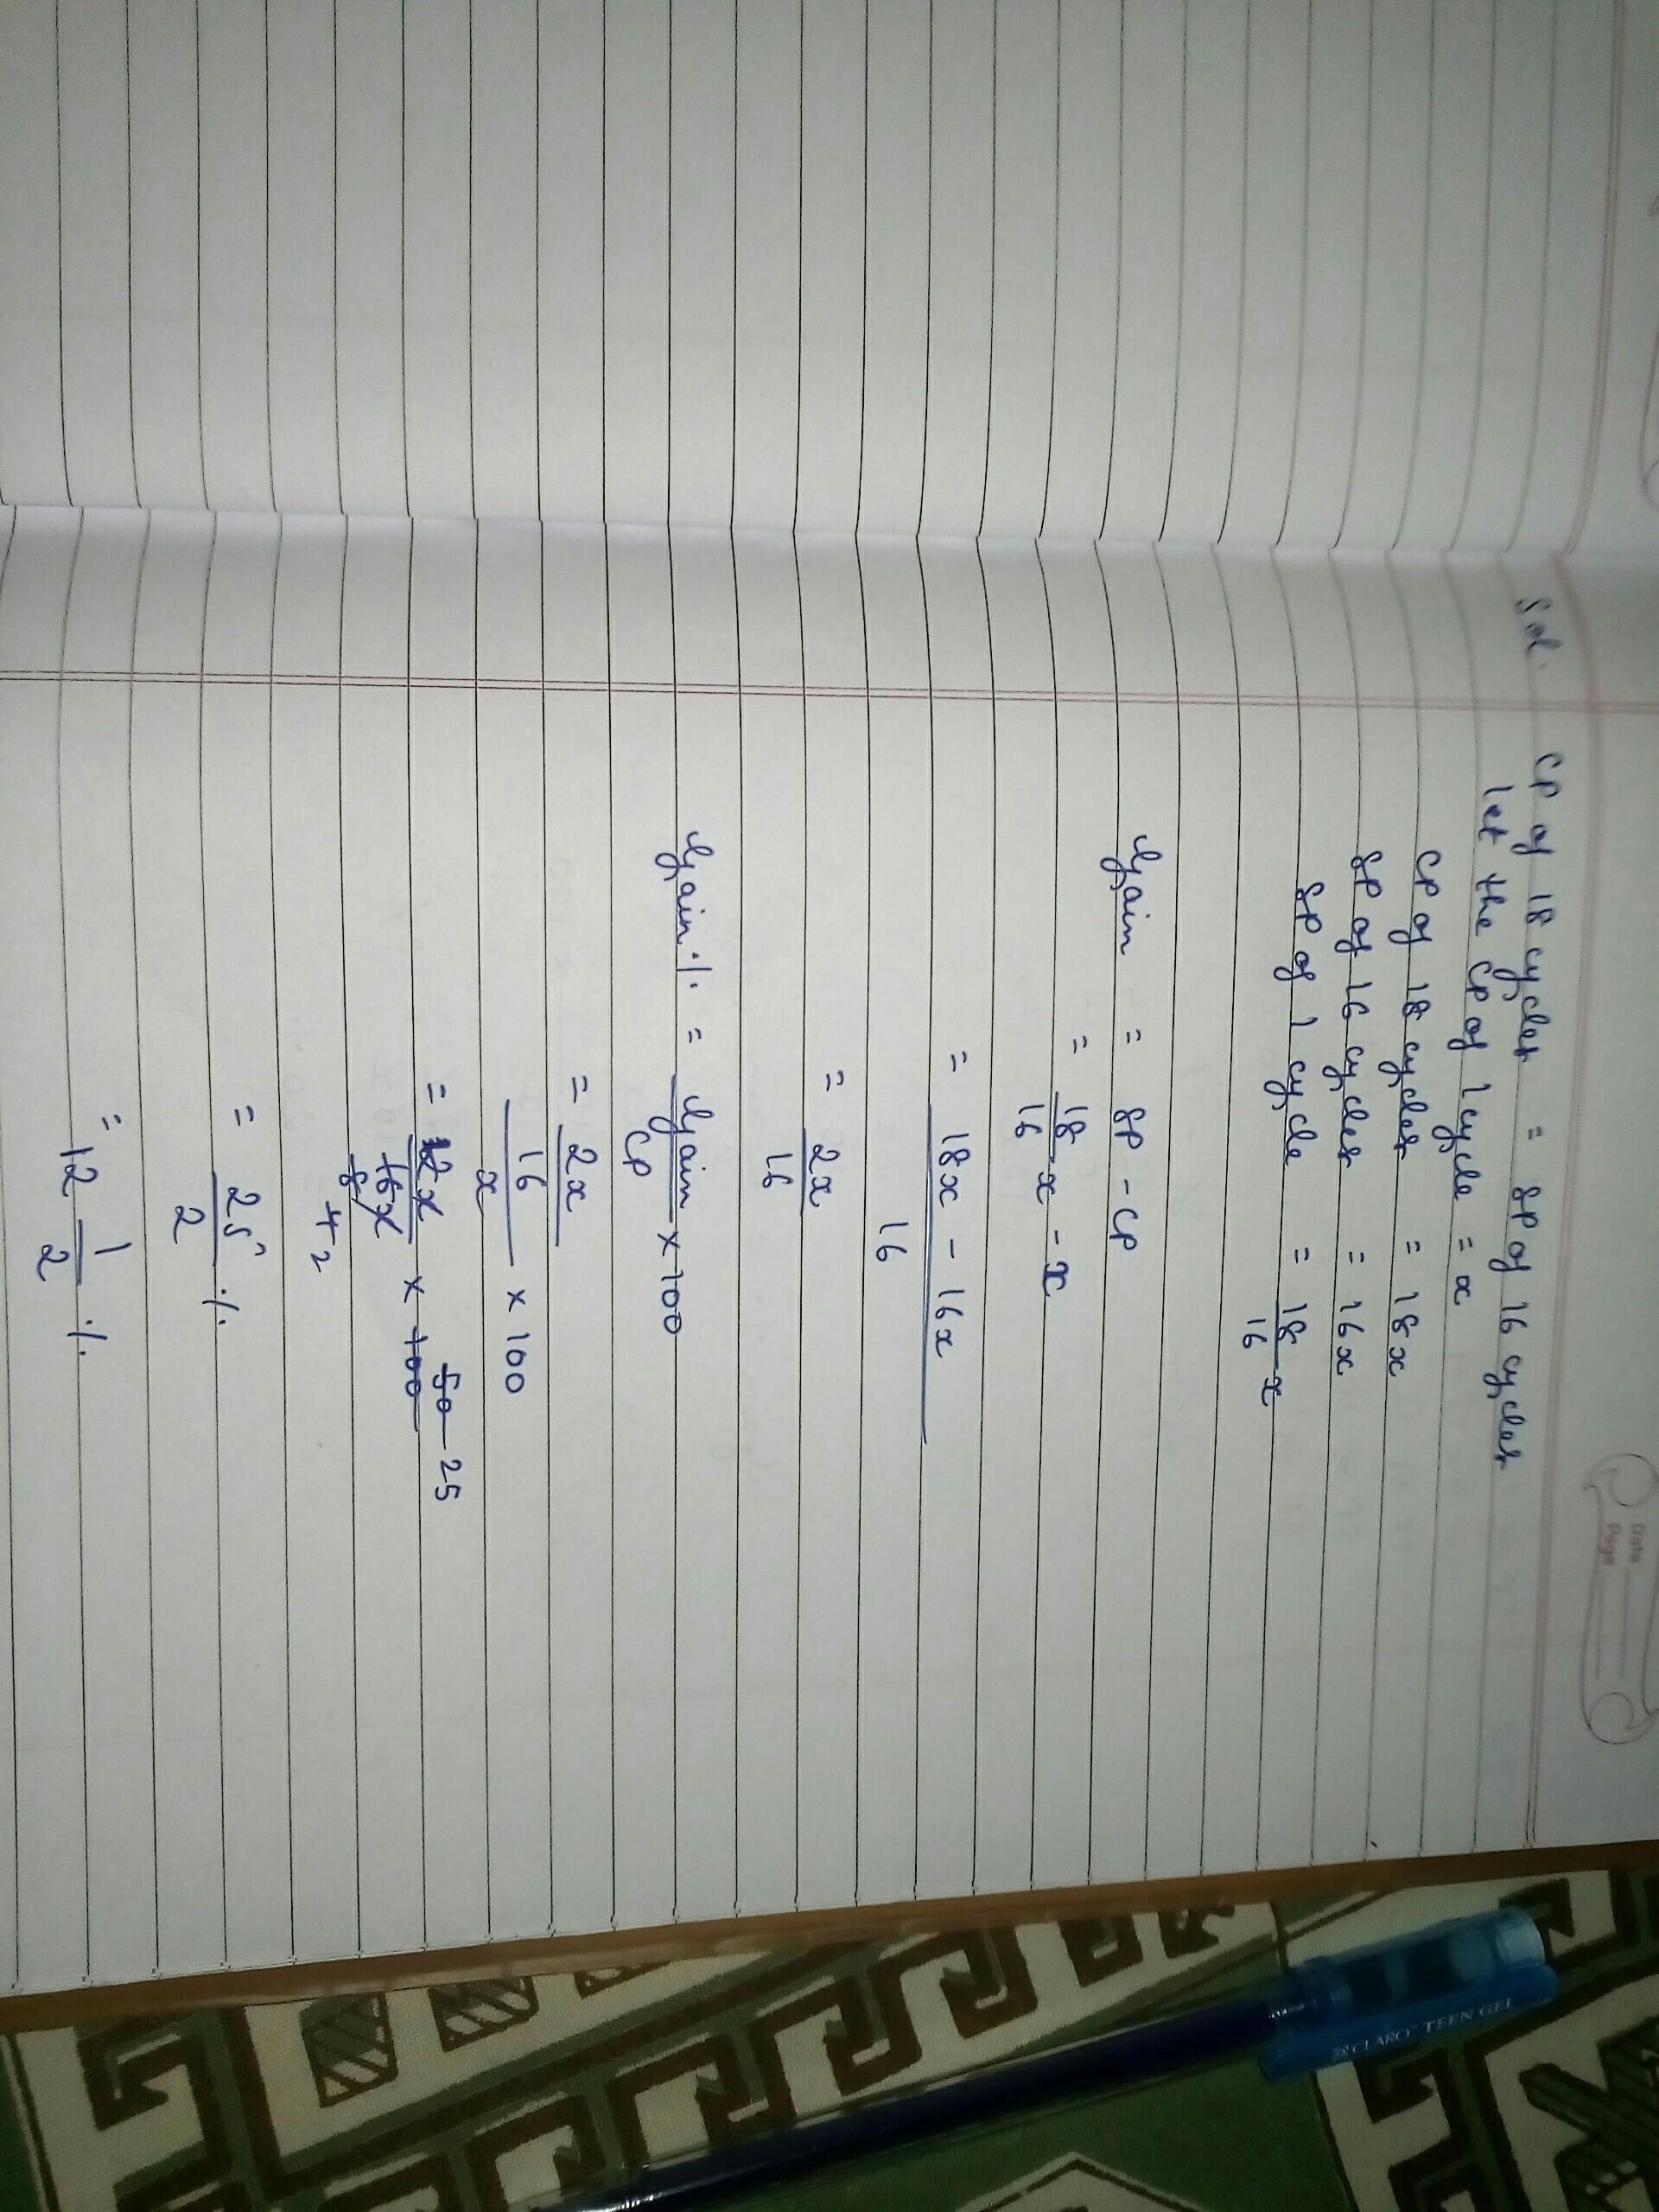 Date
Page
Sol. CP of 18 cycles = SP of 16 cycles
let the CP of 1 cycle = x
CP of 18 cycles = 18x
SP of 16 cycles = 16x
SP of 1 cycle = 18/16 x
Gain = SP - CP
= 18/16 x - x
= 18x - 16x / 16
= 2x / 16
Gain % = Gain / CP × 100
= 2x / 16 / x × 100
= 2x / 16x × 100 50 25
8 4 2
= 25 / 2 %
= 12 1/2 %
CLARO TEEN GEL